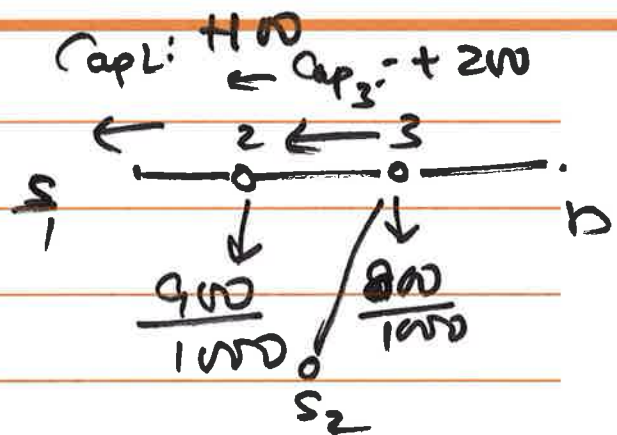 Cap2: +100
← Cap3: + 200
← 2 ← 3
S1 D
900/1000 800/1000
S2